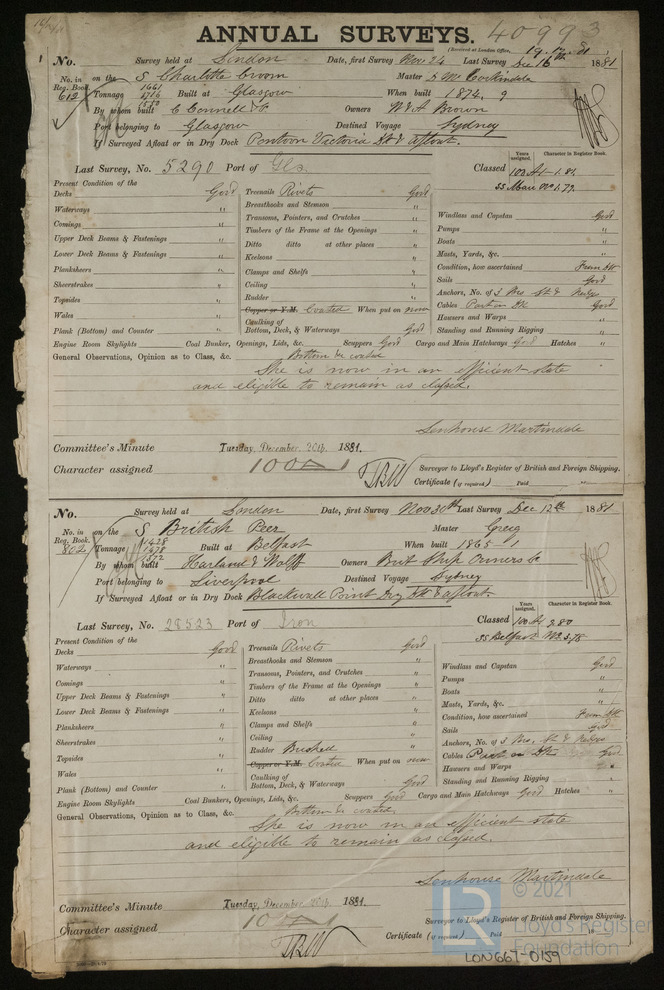 ANNUAL SURVEYS. 40993
(Received at London Office, 19.12.81
No. Survey held at London Date, first Survey Nov. 24 Last Survey Dec 16th 1881
No. in Reg. Book. on the S Charlotte Croom Master
612 Tonnage 1661 1716 1550 Built at Glasgow When built 1874. 9
By whom built C Connell & Co Owners W & A Brown
Port belonging to Glasgow Destined Voyage Sydney
If Surveyed Afloat or in Dry Dock Pontoon Victoria Dk & afloat.
Years assigned. Character in Register Book.
Last Survey, No. 5290 Port of Gls. Classed 100 A1 - 1.81
Present Condition of the
Decks Good Treenails Rivets Good
Waterways " Breasthooks and Stemson "
Comings " Transoms, Pointers, and Crutches " Windlass and Capstan Good
Upper Deck Beams & Fastenings " Timbers of the Frame at the Openings " Pumps "
Lower Deck Beams & Fastenings " Ditto ditto at other places " Boats "
Keelsons " Masts, Yards, &c. "
Planksheers " Clamps and Shelfs " Condition, how ascertained From Dk
Sheerstrakes " Ceiling " Sails Good
Topsides " Rudder " Anchors, No. of 3 Bro. St. &
Wales " Copper or Y.M. Coated When put on now Cables Part on Dk Good
Plank (Bottom) and Counter " Caulking of Bottom, Deck, & Waterways Good Hawsers and Warps "
Standing and Running Rigging "
Engine Room Skylights Coal Bunkers, Openings, Lids, &c. Scuppers Good Cargo and Main Hatchways Good Hatches "
General Observations, Opinion as to Class, &c. Bottom &c coated
She is now in an efficient state
and eligible to remain as classed.
Senhouse Martindale
Committee's Minute Tuesday, December, 20th, 1881.
Character assigned 100A1 Surveyor to Lloyd's Register of British and Foreign Shipping.
Certificate (if required) Paid
No. Survey held at London Date, first Survey Nov 30th Last Survey Dec 12th 1881
No. in Reg. Book. on the S British Peer Master Greig
802 Tonnage 1428 1478 1372 Built at Belfast When built 1865 1
By whom built Harland & Wolff Owners Brit Ship Owners Co
Port belonging to Liverpool Destined Voyage Sydney
If Surveyed Afloat or in Dry Dock Blackwall Point Dry Dk & afloat
Years assigned. Character in Register Book.
Last Survey, No. 28523 Port of Iron Classed 100 A1 2.80
Present Condition of the
Decks Good Treenails Rivets Good
Waterways " Breasthooks and Stemson " Windlass and Capstan Good
Comings " Transoms, Pointers, and Crutches " Pumps "
Upper Deck Beams & Fastenings " Timbers of the Frame at the Openings " Boats "
Lower Deck Beams & Fastenings " Ditto ditto at other places " Masts, Yards, &c. "
Planksheers " Keelsons " Condition, how ascertained From Dk
Sheerstrakes " Clamps and Shelfs " Sails Good
Topsides " Ceiling " Anchors, No. of 3 Bro. St. &
Wales " Rudder Bushed Cables Part on Dk Good
Copper or Y.M. Coated When put on now Hawsers and Warps
Plank (Bottom) and Counter " Caulking of Bottom, Deck, & Waterways Good Standing and Running Rigging "
Engine Room Skylights Coal Bunkers, Openings, Lids, &c. Scuppers Good Cargo and Main Hatchways Good Hatches "
General Observations, Opinion as to Class, &c. Bottom &c coated.
She is now in an efficient state
and eligible to remain as classed.
Senhouse Martindale
Committee's Minute Tuesday, December, 20th, 1881.
Character assigned 100A1 Surveyor to Lloyd's Register of British and Foreign Shipping.
Certificate (if required) Paid
© 2021
LR Lloyd's Register
Foundation
LON667-0159